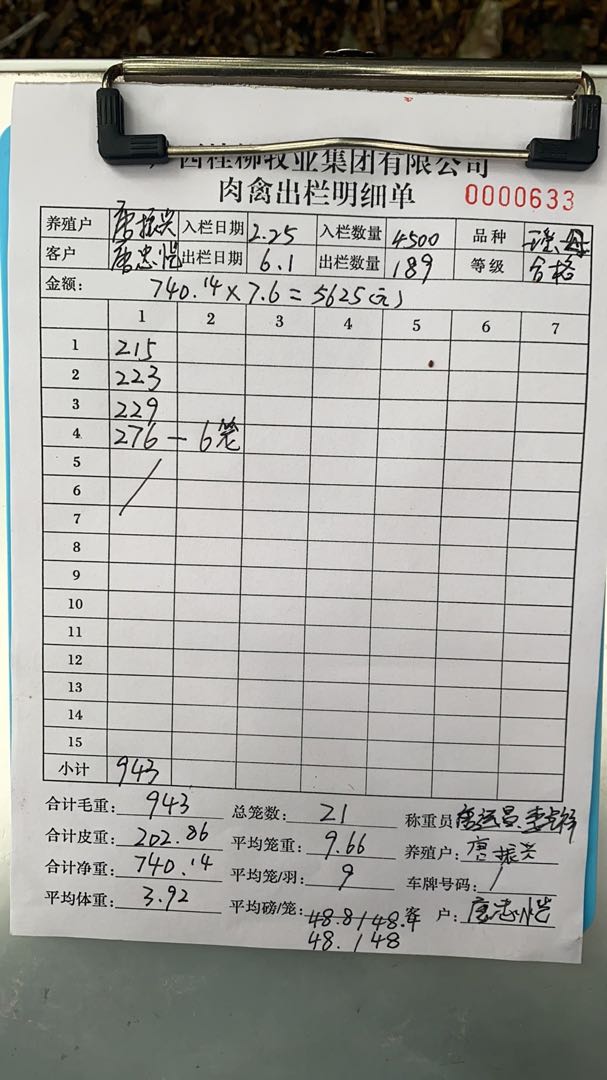 西桂柳牧业集团有限公司
肉禽出栏明细单 0000633
养殖户 唐振兴 入栏日期 2.25 入栏数量 4500 品种
客户 出栏日期 6.1 出栏数量 189 等级 合格
金额: 740.14×7.6=5625(元)
1 2 3 4 5 6 7
1 215
2 223
3 229
4 276 — 6笼
5
6
7
8
9
10
11
12
13
14
15
小计 943
合计毛重: 943 总笼数: 21 称重员
合计皮重: 202.86 平均笼重: 9.66 养殖户: 唐振兴
合计净重: 740.14 平均笼/羽: 9 车牌号码: /
平均体重: 3.92 平均磅/笼: 48.8/48.4 客户:
48./48